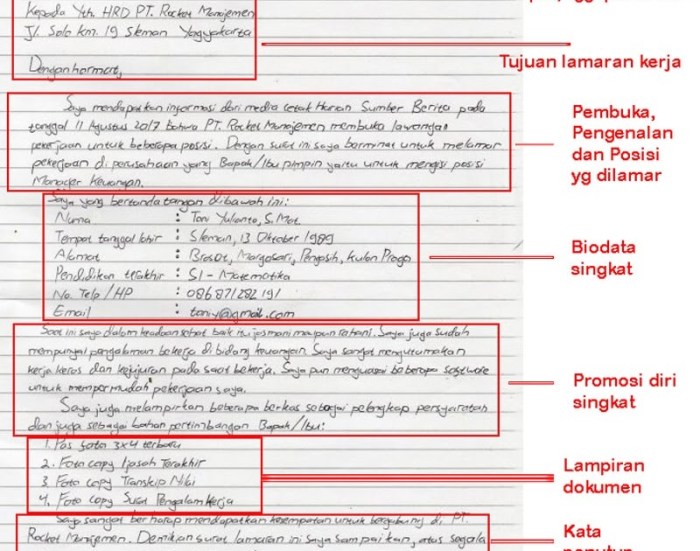 Kepada Yth. HRD PT. Rocket Manajemen
Jl. Solo km. 19 Sleman Yogyakarta
Tujuan lamaran kerja
Dengan hormat,
Saya mendapatkan informasi dari media cetak Harian Sumber Berita pada
tanggal 11 Agustus 2017 bahwa PT. Rocket Manajemen membuka lowongan
pekerjaan untuk beberapa posisi. Dengan surat ini saya berminat untuk melamar
pekerjaan di perusahaan yang Bapak/Ibu pimpin yaitu untuk mengisi posisi
Manager Keuangan.
Pembuka,
Pengenalan
dan Posisi
yg dilamar
Saya yang bertanda tangan dibawah ini:
Nama : Toni Yulianto, S.Mat
Tempat tanggal lahir : Sleman, 13 Oktober 1989
Alamat : Brosot, Margosari, Pengasih, Kulon Progo
Pendidikan terakhir : S1 - Matematika
No. Telp/HP : 086871282191
Email : toniy@gmail.com
Biodata
singkat
Saat ini saya dalam keadaan sehat baik itu jasmani maupun rohani. Saya juga sudah
mempunyai pengalaman bekerja di bidang keuangan. Saya sangat mengutamakan
kerja keras dan kejujuran pada saat bekerja. Saya pun menguasai beberapa software
untuk mempermudah pekerjaan saya.
Saya juga melampirkan beberapa berkas sebagai pelengkap persyaratan
dan juga sebagai bahan pertimbangan Bapak/Ibu:
Promosi diri
singkat
1. Pas foto 3x4 terbaru
2. Foto copy Ijasah Terakhir
3. Foto copy Transkip Nilai
4. Foto copy Surat Pengalam Kerja
Lampiran
dokumen
Saya sangat berharap mendapatkan kesempatan untuk bergabung di PT.
Rocket Manajemen. Demikian surat lamaran ini saya sampaikan, atas segala
Kata